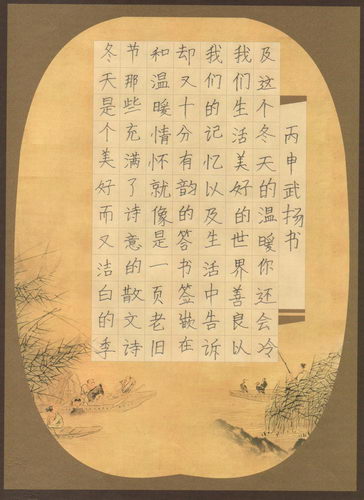 冬天是个美好而又洁白的季
节那些充满了诗意的散文诗
和温暖情怀就像是一页老旧
却又十分有韵的答书签在
我们的记忆以及生活中告诉
我们生活美好的世界善良以
及这个冬天的温暖你还会冷
丙申武扬书